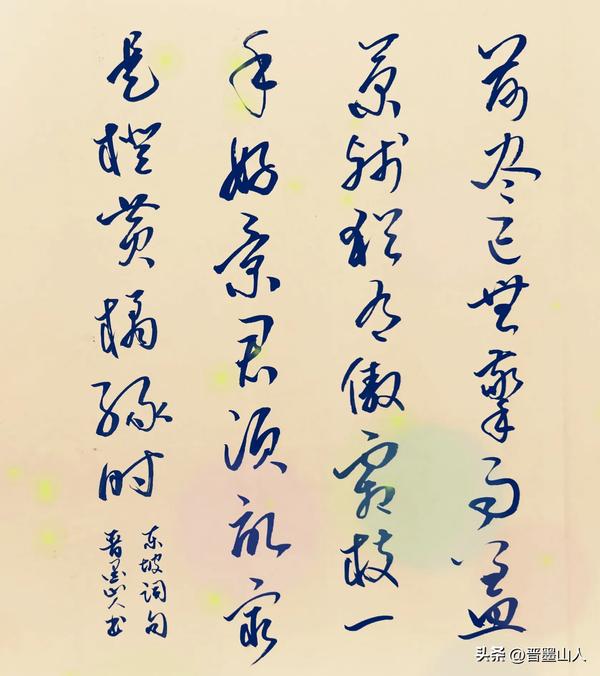 荷尽已無擎雨盖
菊残犹有傲霜枝一
年好景君须记最
是橙黄橘绿时
东坡词句
晋墨山人书
头条 @晋墨山人